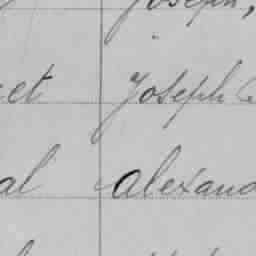 Joseph,
et Joseph
al alexand